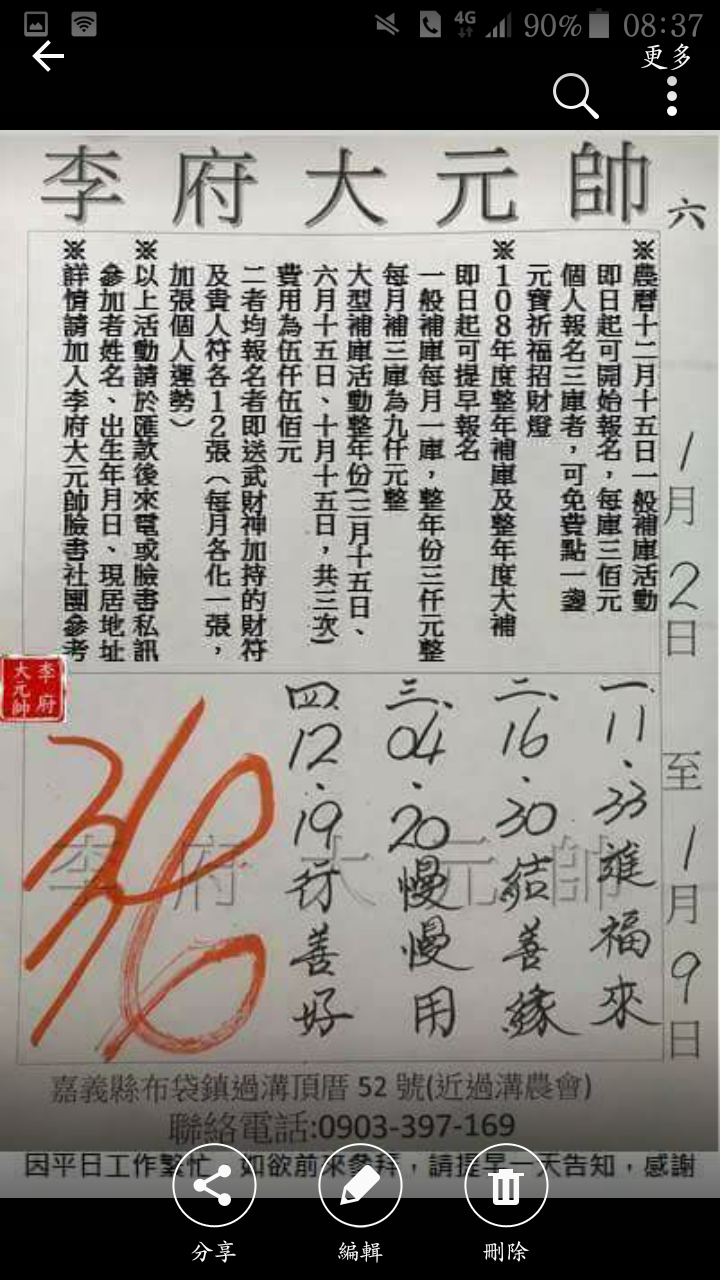 4G 90% 08:37
更多
李府大元帥
六
1月2日至1月9日
※農曆十二月十五日一般補庫活動
即日起可開始報名，每庫三佰元
個人報名三庫者，可免費點一盞
元寶祈福招財燈
※108年度整年補庫及整年度大補
即日起可提早報名
一般補庫每月一庫，整年份三仟元整
每月補三庫為九仟元整
大型補庫活動整年份(二月十五日、
六月十五日、十月十五日，共三次)
費用為伍仟伍佰元
二者均報名者即送武財神加持的財符
及貴人符各12張（每月各化一張，
加張個人運勢）
※以上活動請於匯款後來電或臉書私訊
參加者姓名、出生年月日、現居地址
※詳情請加入李府大元帥臉書社團參考
李府
大元帥
一、11.33進福來
二、16.30結善緣
三、04.20慢慢用
四、12.19行善好
李府大元帥
嘉義縣布袋鎮過溝頂厝 52 號(近過溝農會)
聯絡電話:0903-397-169
因平日工作繁忙，如欲前來參拜，請提早一天告知，感謝
分享
編輯
刪除